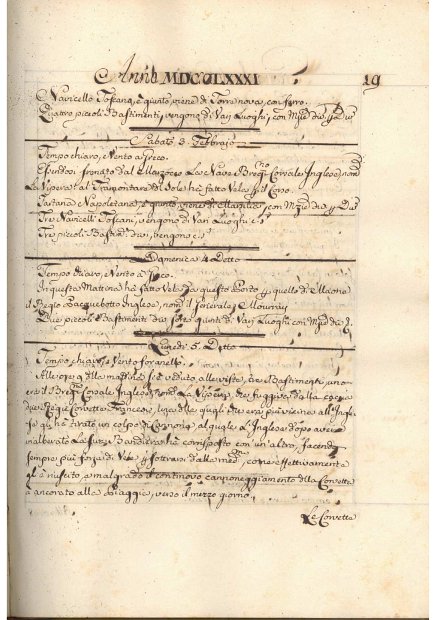 Anno MDCCLXXXI
19
Navicello Toscano, è giunto, viene di Terra nova, con ferro.
Quatro piccoli Bastimenti, vengono di Varj Luoghi, con Mzie div.
Sabato 3 Febbrajo
Tempo chiaro, Vento a Greco.
dal Marzocco La Nave Corsale Inglese, nom
La Vipera, al Tramontare del Sole hà fatto Vela p il Corso.
Tartana Napoletana, è giunta, viene di Marsilia, con Mzie div
Tre Navicelli Toscani, vengono di Varj Luoghi
Tre piccoli Bastim div, vengono
Domenica 4 Detto
Tempo chiaro, Vento a
In questa Mattina hà fatto Vela da questo Bordo p quello di Maone
il Regio Pacquebotto Inglese, nom il General Mourray
piccoli Bastimenti sono giunti di Varj Luoghi con Mzie div
Lunedì 5 Detto
Tempo chiaro, e Vento
Alle ore 9 della mattina si è veduto alle viste, tre Bastimenti, uno
era il Corsale Inglese, nom La Vipera, che fuggiva dalla caccia
due Regie Corvette Francesi, una delle quali che era più vicina all'Ingle
se gli hà tirato un colpo di Cannone, al quale l'Inglese dopo avere
inalberato La sua Bandiera, hà corrisposto con un altro, facendo
sempre più forza di Vele p sottrarsi dalla med, come effettivamente
gl'è riuscito, a mal grado il continovo cannoneggiamento della Corvetta
è ancorato alla Spiaggia, verso il mezzo giorno.
Le Corvette